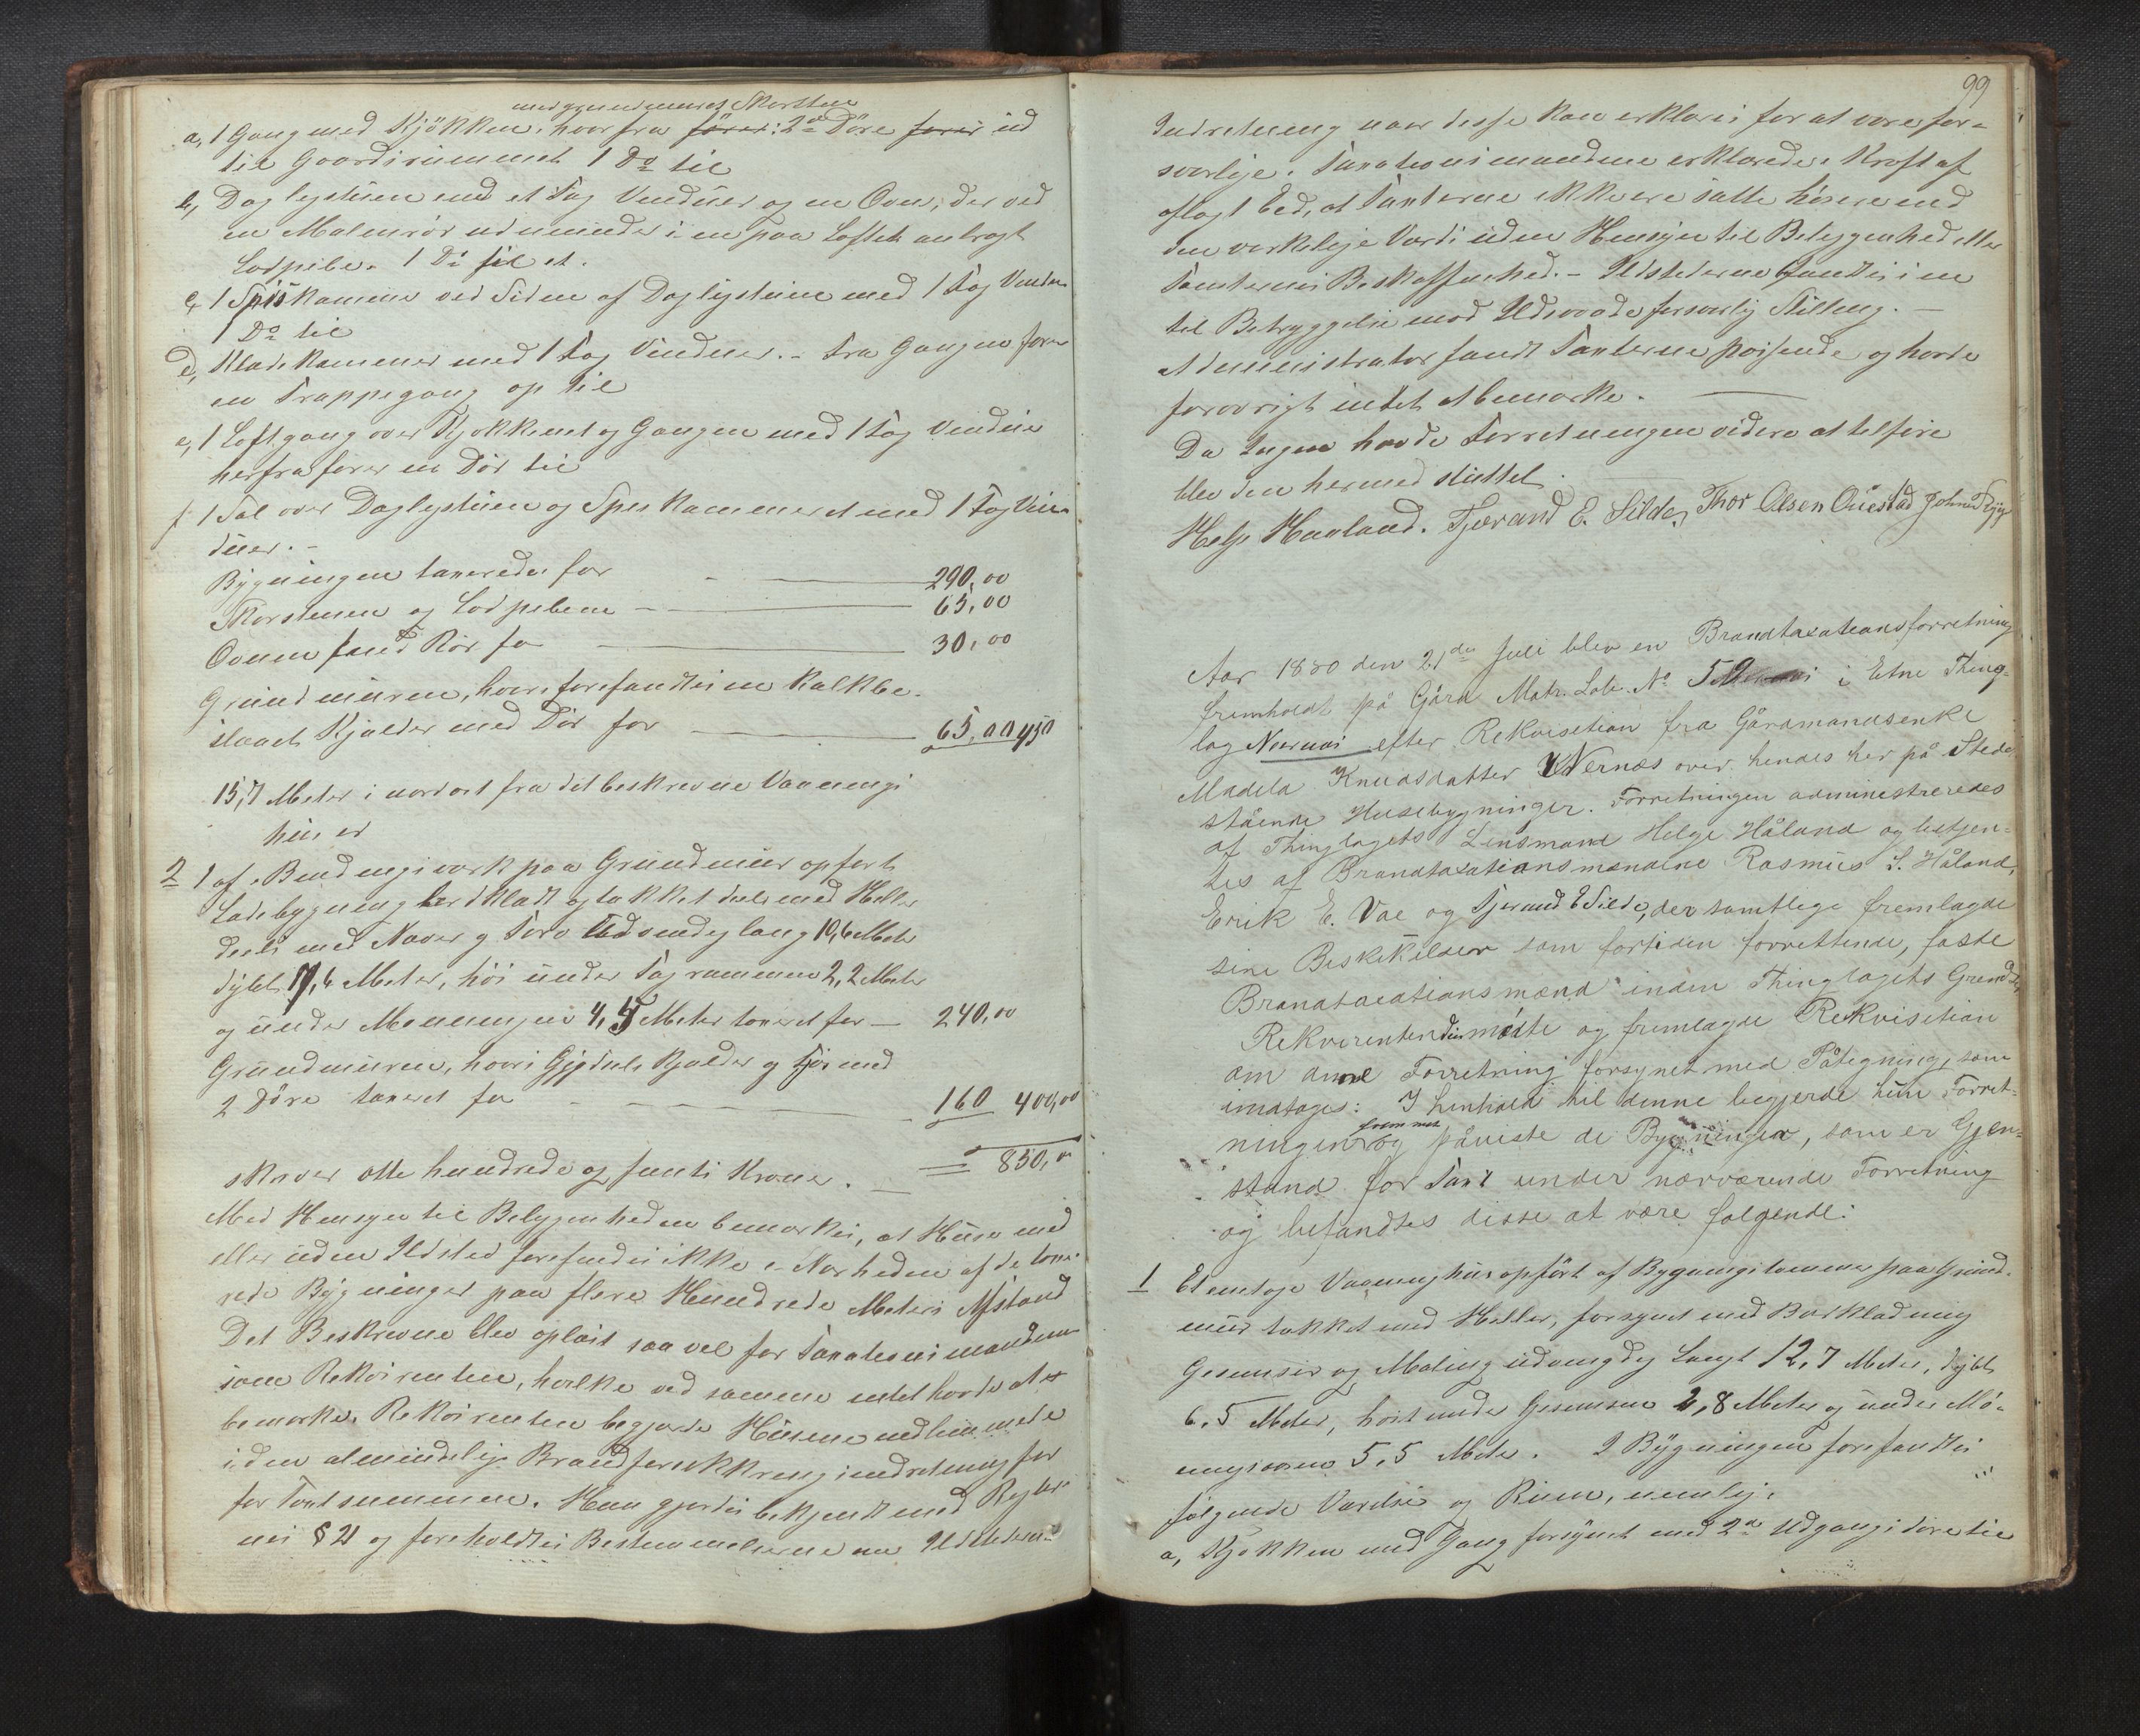 med grundmuret Skorsten
a, 1 Gang med Kjökken, hvorfra fører: 2de Döre fører ud
til Gaardsrummet 1 Do til
b, Daglystuen med et Fag Vinduer og en Ovn, der ved
en Malmrör udmunder i en paa Loftet anbragt
Lodpibe. 1 Do til et.
c, 1 Spiskammer ved Siden af Daglystuen med 1 Fag Vindu
1 Do til
d, Klædekammer med 1 Fag Vinduer. - Fra Gangen fører
en Trappegang op til
e, 1 Loftgang over Kjøkkenet og Gangen med 1 Fag Vinduer
herfra fører en Dör til
f 1 Sal over Daglystuen og Spiskammeret med 1 Fag Vin-
duer. -
Bygningen taxeredes for 290,00
Skorstenen og Lodpiberne 65,00
Ovnen med Rör for 30,00
Grundmuren, hvori forefandtes en Kalkbe-
slaaet Kjelder med Dör for 65,00 450
15,7 Meter i nordost fra det beskrevne Vaanings
hus er
2 1 af Bindingsværk paa Grundmur opfört
Ladebygning bordklædt og tækket deels med Heller
deels med Næver og Torv Udvendig lang 10,6 Meter
dybt 7,4 Meter, höi under Tagrammen 2,2 Meter
og under Mönningen 4,5 Meter taxeret for — 240,00
Grundmuren, hvori Gjödsels Kjelder og Fjös med
2 Döre taxeret for 160 400,00
skriver otte hundrede og femti Kroner. — 850,00
Med Hensyn til Belygenheden bemærkes, at Huse med
eller uden Ildsted forefindes ikke i Nærheden af de taxe-
rede Bygninger paa flere Hundrede Meters Afstand
Det Beskrevne blev oplæst saavel for Taxationsmændene
som Rekvirenten, hvilke ved samme intet havde at
bemærke. Rekvirenten begjærede Husene indlemmede
i den almindelige Brandforsikkringsindretning for
for Taxtsummen. Han gjordes bekjendt med Regler-
nes § 21 og foreholdtes Bestemmelserne om Ildstedernes
99
Indretning naar disse kan erklæres for at være for-
svarlige. Taxationsmændene erklærede i Kraft af
aflagt Eed, at Taxterne ikke ere satte höiere end
den virkelige Værdi uden Hensyn til Belygenhed eller
Tomternes Beskaffenhed. - Ildstederne fandtes i en
til Betryggelse mod Ildsvaade forsvarlig Stilling. —
Administrator fandt Taxterne passende og havde
forøvrigt intet at bemærke. —
Da Ingen havde Forretningen videre at tilføie
blev den hermed sluttet.
Helge Haaland. Tjerand E. Silde, Thor Olsen Öiestad John
Aar 1880 den 21de Juli blev en Brandtaxationsforretning
fremholdt på Gård Matr. Løb. No 59 i Etne Thing-
lag Nærnæs efter Rekvisition fra Gårdmandsenke
Madela Knudsdatter Nernæs over hendes her på Stede
stående Husebygninger. Forretningen administreredes
af Thinglagets Lensmand Helge Håland og betjen-
tes af Brandtaxationsmændene Rasmus S. Håland,
Erik E. Vae og Tjerand E Silde, der samtlige fremlagde
sine Beskikkelser som fortiden forrettende, faste
Brandtaxationsmænd inden Thinglagets Grendser
Rekvirentinden mødte og fremlagde Rekvisition
om denne Forretning forsynet med Påtegning, som
indtages: I henhold til denne begjerede hun Forret-
ningen fremmet og påviste de Bygninger, som er Gjen-
stand for Taxt under nærværende Forretning
og befandtes disse at være følgende:
1 Et enetages Vaaningshus opfört af Bygningstømmer paa Grund-
mur tækket med Heller, forsynet med Bordklædning
Gesimser og Maling udvendig Langt 12,7 Meter, dybt
6,5 Meter, höit under Gesimsen 2,8 Meter og under Mö-
ningsaasen 5,5 Meter. I Bygningen forefandtes
følgende Værelser og Rum, nemlig:
a, Kjøkken med Gang forsynet med 2de Udgangsdøre til